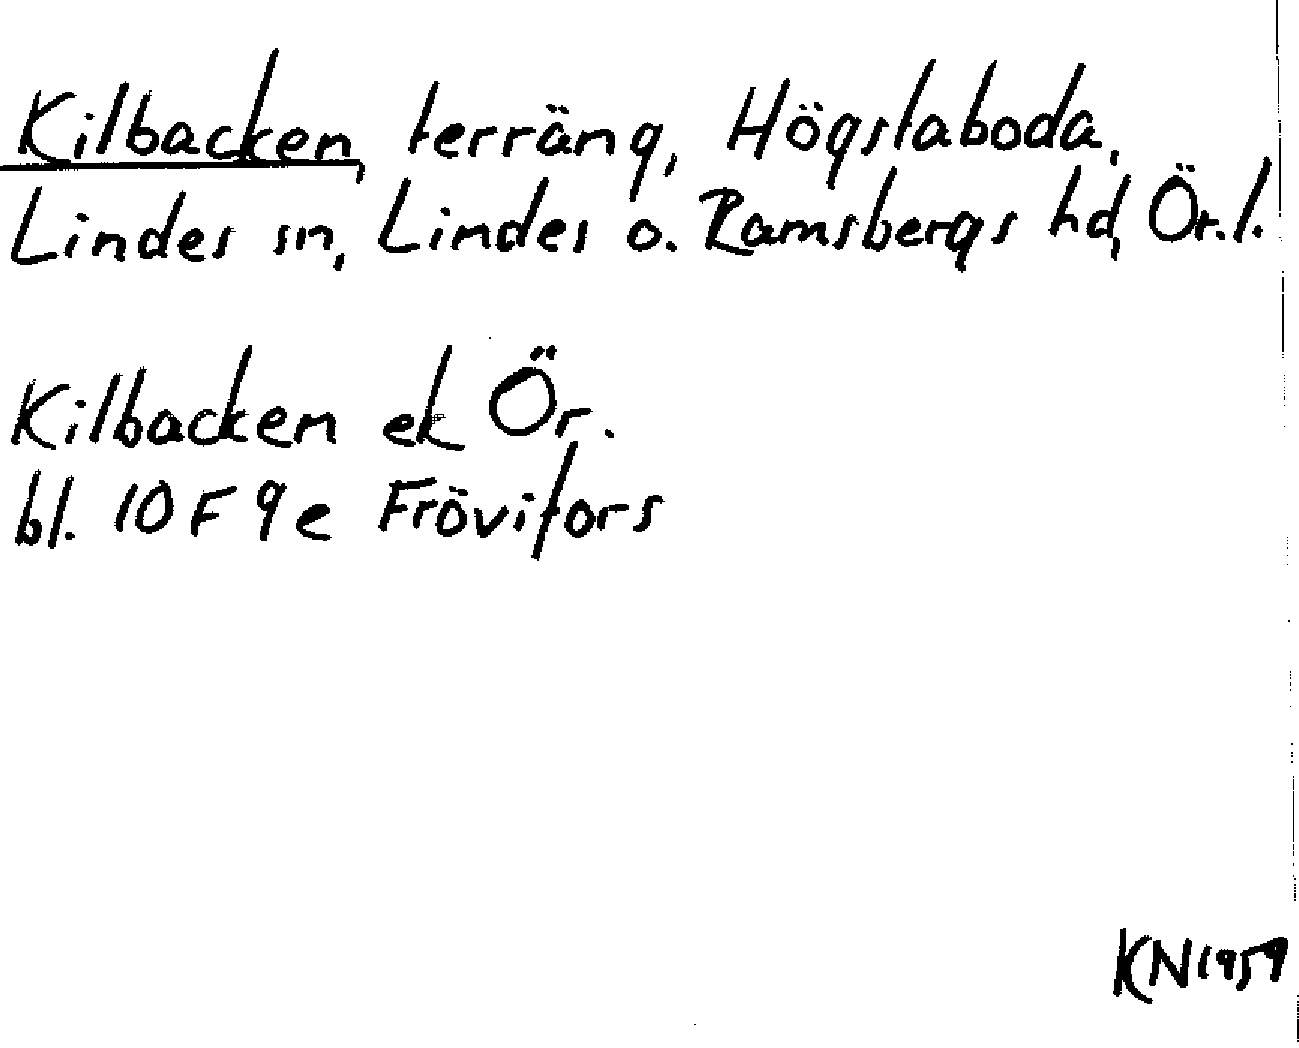 Kilbacken, terräng, Högstaboda,
Lindes sn, Lindes o. Ramsbergs hd, Ör. l.
Kilbacken ek Ör.
bl. 10 F 9 e Frövifors
KN 1959